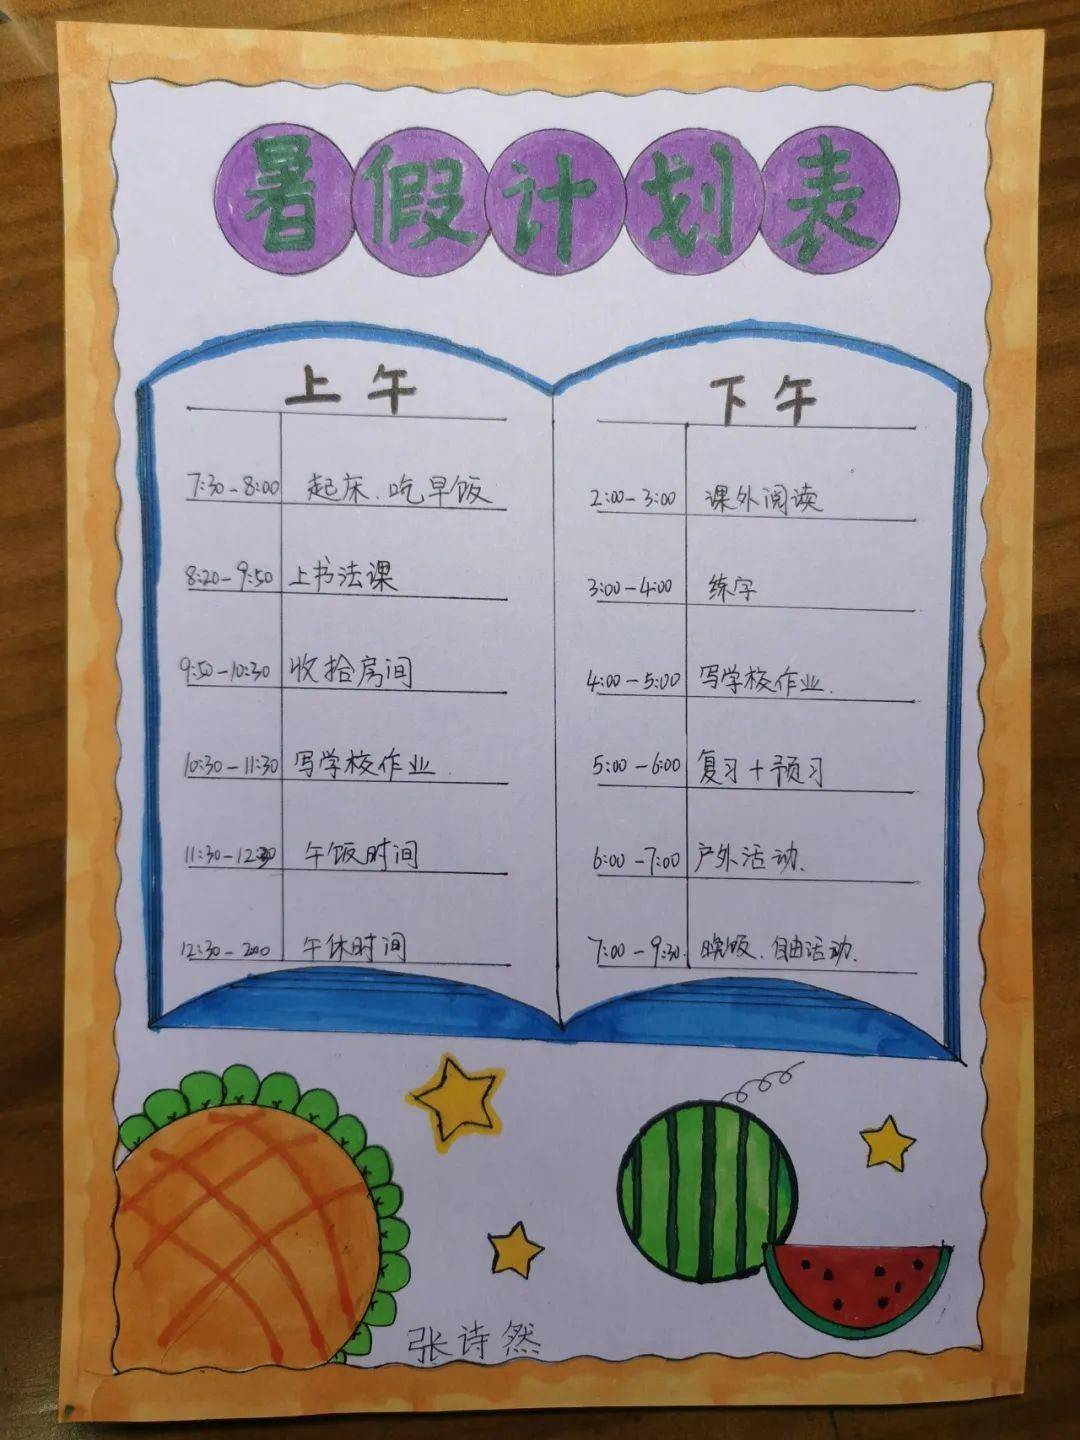 暑假计划表
上午
7:30-8:00 起床、吃早饭
8:20-9:50 上书法课
9:50-10:30 收拾房间
10:30-11:30 写学校作业
11:30-12:30 午饭时间
12:30-2:00 午休时间
下午
2:00-3:00 课外阅读
3:00-4:00 练字
4:00-5:00 写学校作业.
5:00-6:00 复习+预习
6:00-7:00 户外活动、
7:00-9:30. 晚饭、自由活动、
张诗然